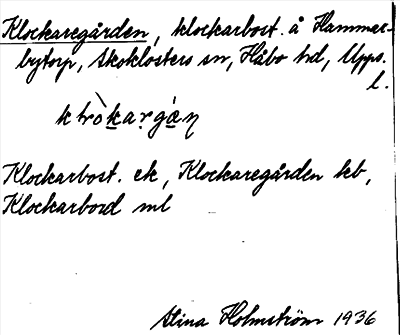 Klockaregården, klockarbost. å Hammar-
bytorp, Skoklosters sn, Håbo hd, Upps.
l.
ktròkargáɳ
Klockarbost. ek, Klockaregården kb,
Klockarbord ml
Stina Holmström 1936